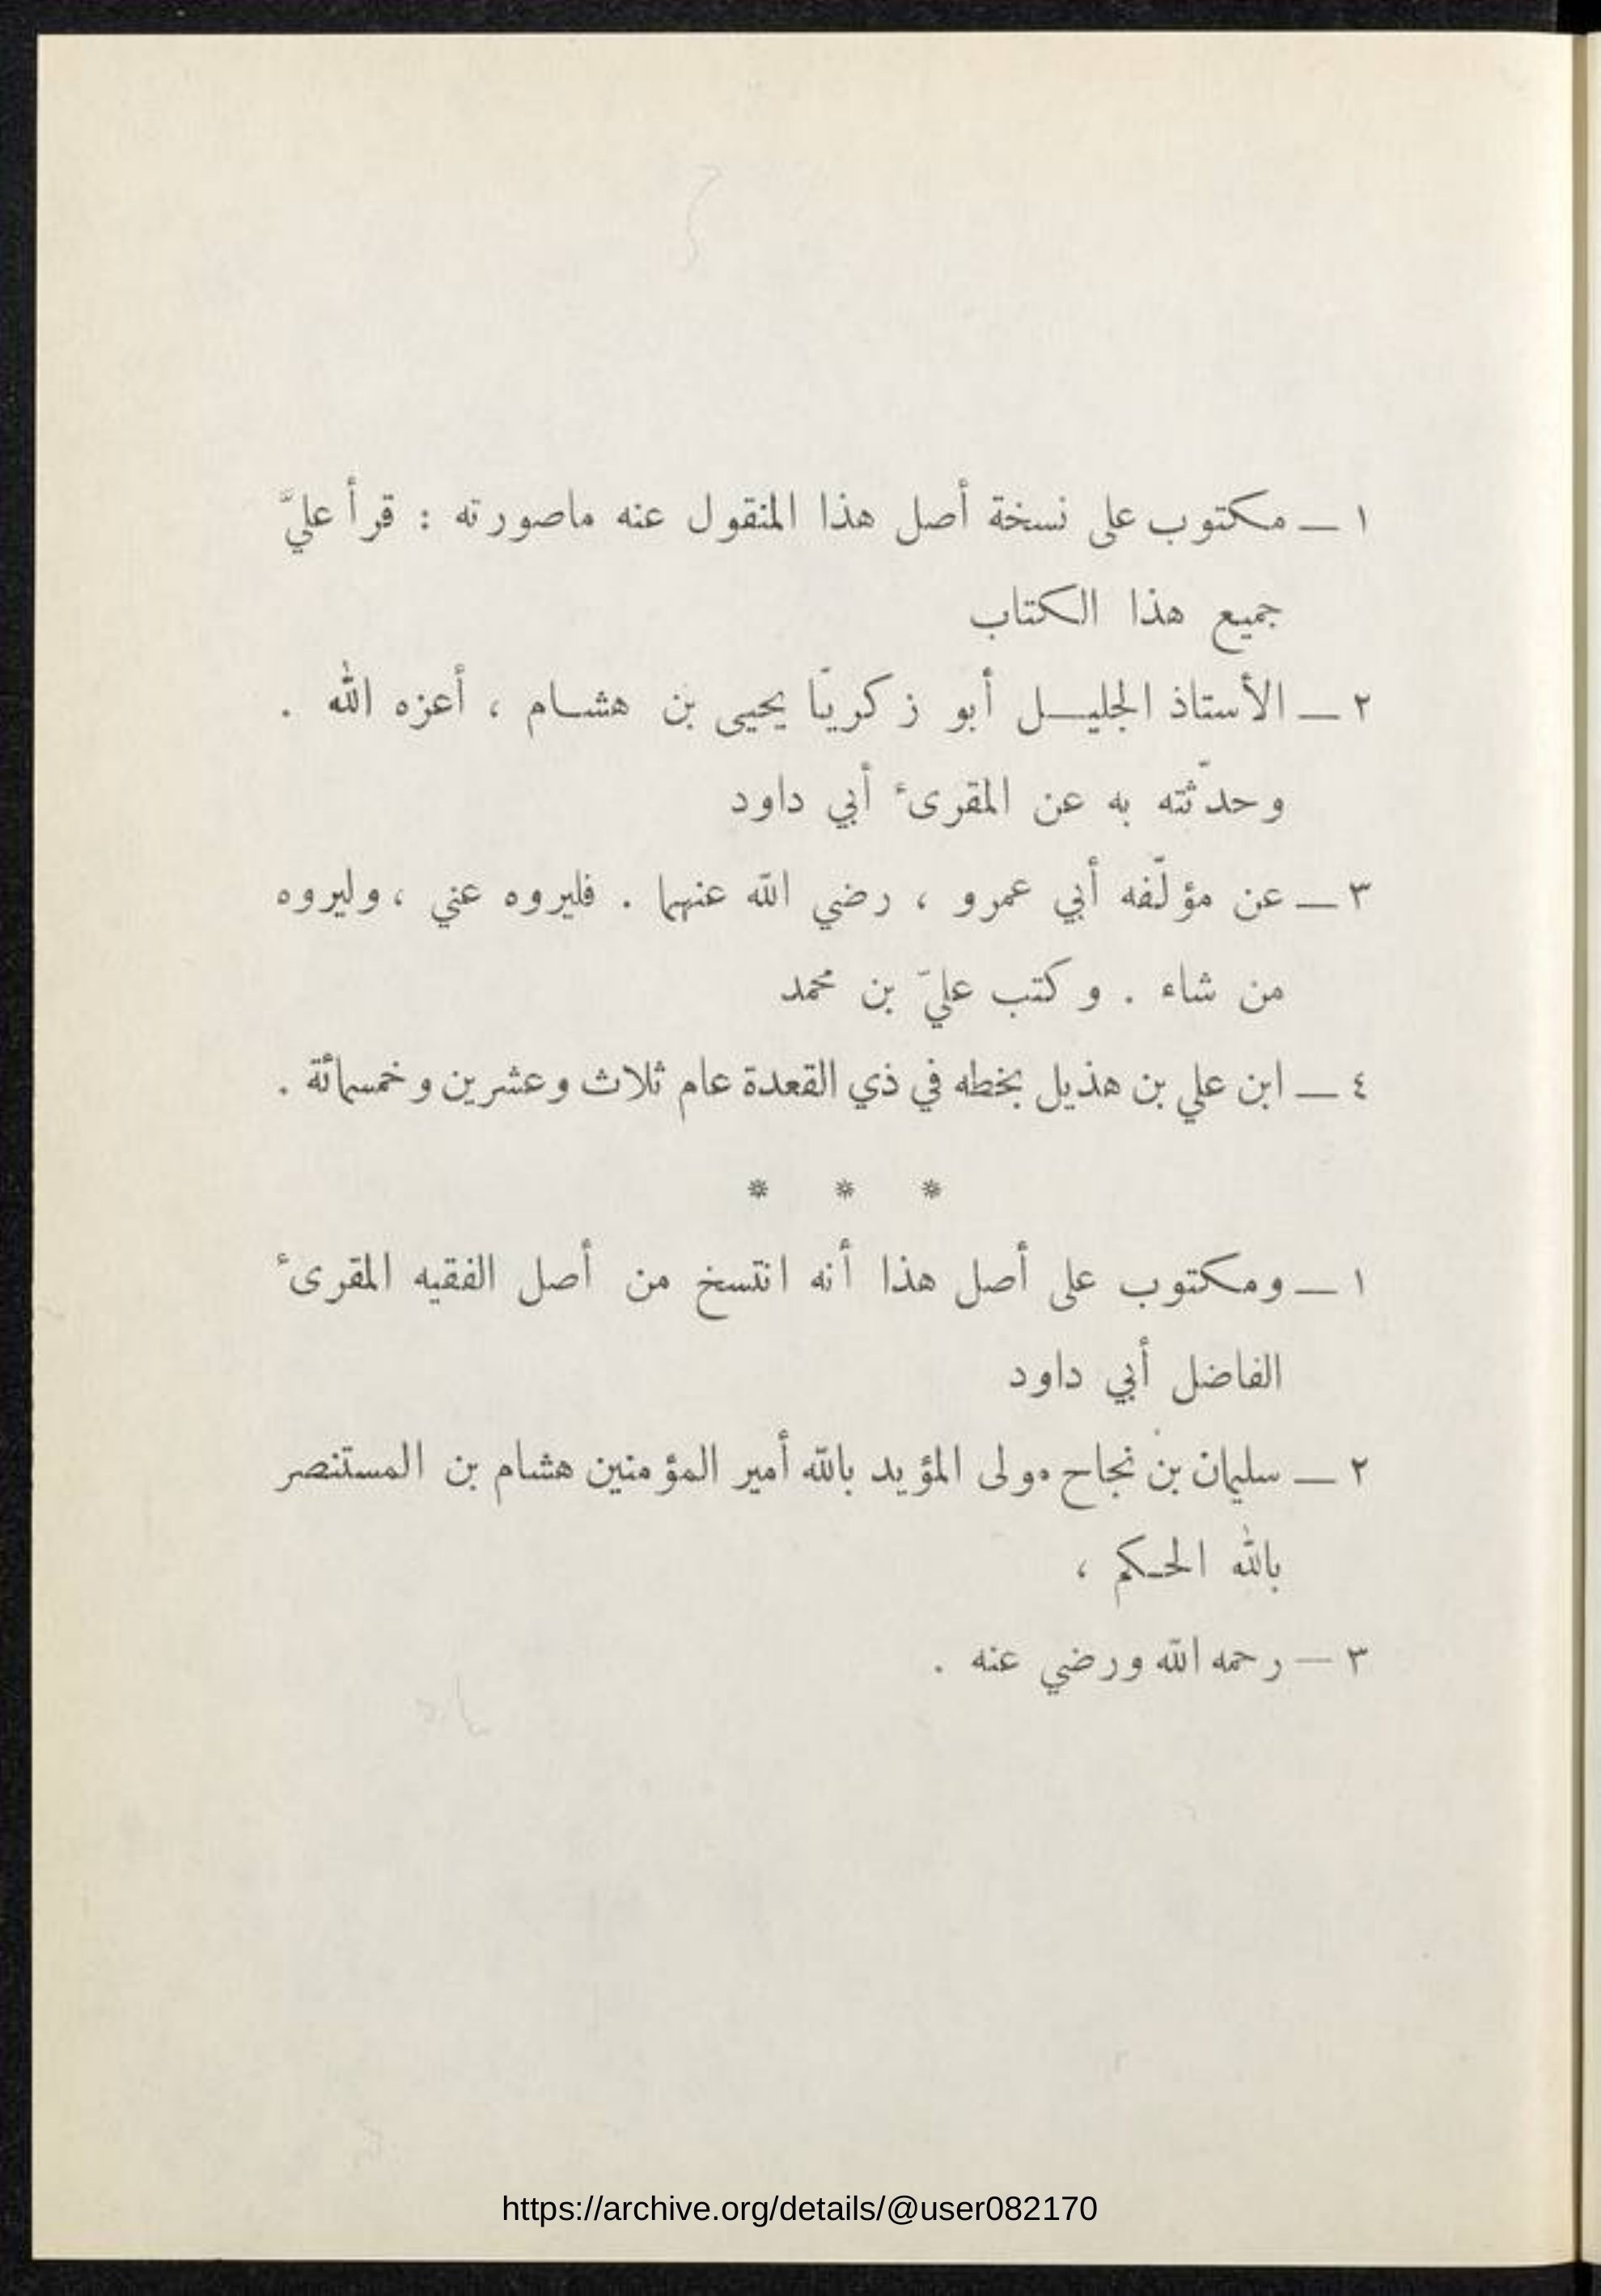 ١ — مكتوب على نسخة أصل هذا المنقول عنه ماصورته : قرأ عليَّ
جميع هذا الكتاب
٢ — الأستاذ الجليـــل أبو زكريّا يحيى بن هشـام ، أعزه الله .
وحدّثته به عن المقرىء أبي داود
٣ — عن مؤلّفه أبي عمرو ، رضي الله عنهما . فليروه عني ، وليروه
من شاء . وكتب عليّ بن محمد
٤ — ابن علي بن هذيل بخطه في ذي القعدة عام ثلاث وعشرين وخمسمائة .
* * *
١ — ومكتوب على أصل هذا أنه انتسخ من أصل الفقيه المقرىء
الفاضل أبي داود
٢ — سليمان بن نجاح مولى المؤيد بالله أمير المؤمنين هشام بن المستنصر
بالله الحـكم ،
٣ — رحمه الله ورضي عنه .
https://archive.org/details/@user082170